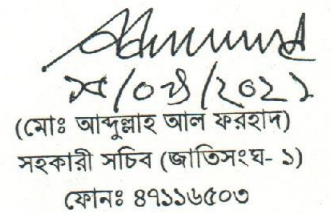 (মোঃ আব্দুল্লাহ আল ফরহাদ)
সহকারী সচিব (জাতিসংঘ- ১)
ফোনঃ ৪৭১১৬৫০৩